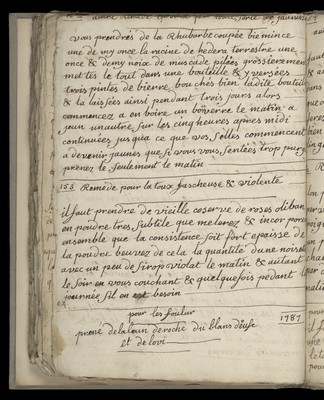 vous prendrés de la Rhubarbe coupée bie mince
une de my once la racine de hedera terrestre une
once & demy noix de muscade pilées grossieremen
mettés le tout dans une bouteille & y versées
trois pintes de bierre, bouchés bien ladite bouteille
& la laissées ainsi pendant trois jours alors
commencéz a en boire un bõ verre le matin a
jeun un autre sur les cinq heures apres midi
continuées jusqua ce que vos selles commencent
a devenir jaunes que si vous vous sentées trop purg
prenez le seulement le matin
158 Remede pour la toux fascheuse & violente
il faut prendre de vieille coserve de roses oliban
en poudre tres subtile que melerez & incorpore
ensemble que la consistence soit fort epaisse de
la poudre beuvez de cela la quantité dune noiset
avec un peu de sirop violat le matin & autant
le soir en vous couchant & quelquefois pẽdant le
journée sil en est besoin
pour les foulur
prené de laloun de roche du blans deufe
et de lovi
1787